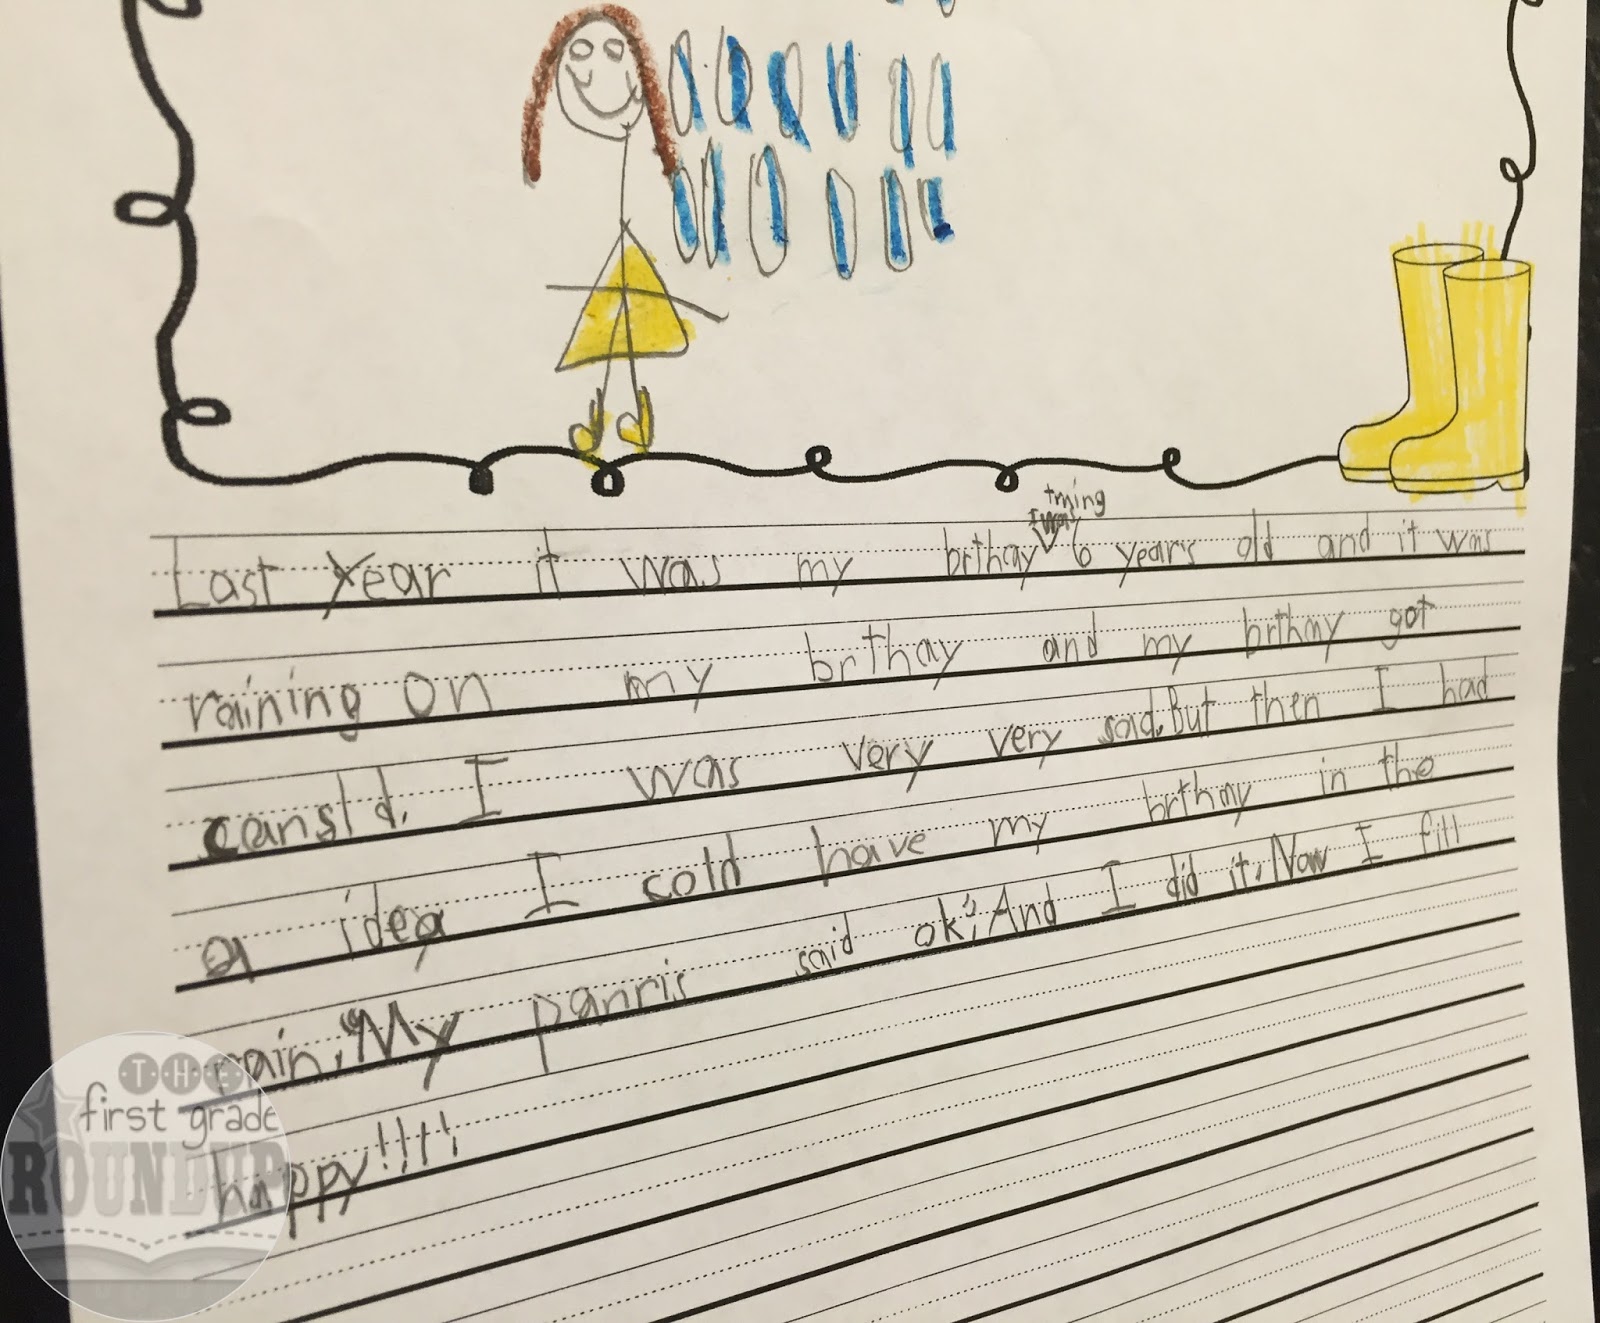 tming
I was
Last Year it was my brthay 6 years old and it was
raining on my brthay and my brthay got
cansld. I was very very sad. But then I had
a idea I cold have my brthay in the
rain. "My panris said ok". And I did it. Now I fill
happy!!!!
THE
first grade
ROUNDUP